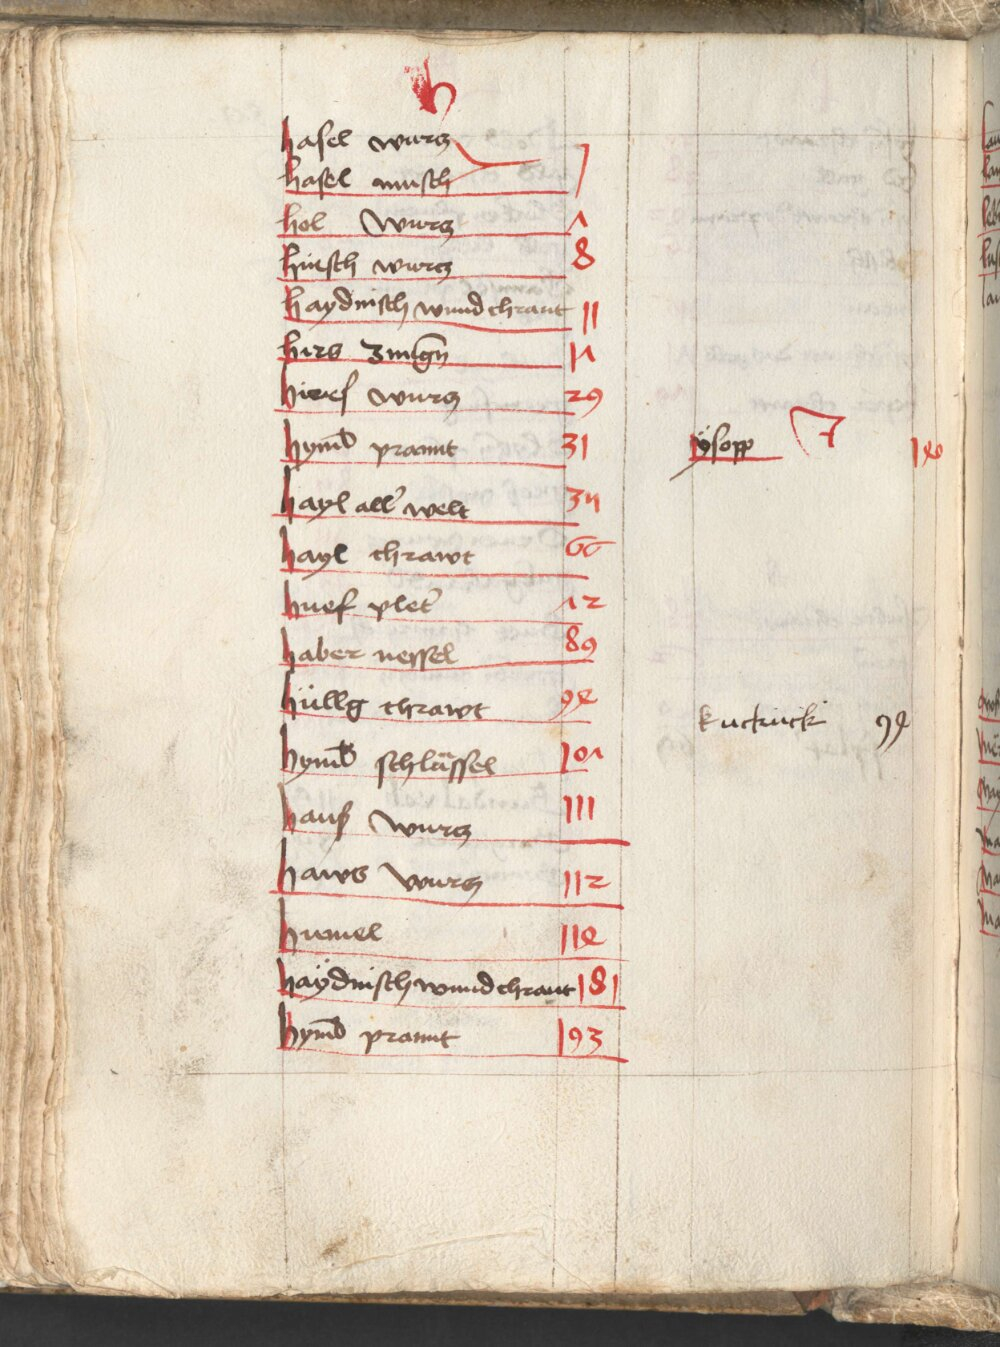 h
hasel wurcz
hasel musch 7
hol wurcz 1
hirsch wurcz 8
haydnisch wundchraut 11
hirs zungn 14
hirss wurcz 29
hymlprannt 31
hayl aller welt 34
hayl chrawt 66
huef pleter 12
haber nessel 89
hüllg chrawt 94
hyml schlüssel 101
haus wurcz 111
haws wurcz 112
humel 114
haydnisch wundchraut 181
hyml prannt 193
J
ysopp 14
kuckuck 94